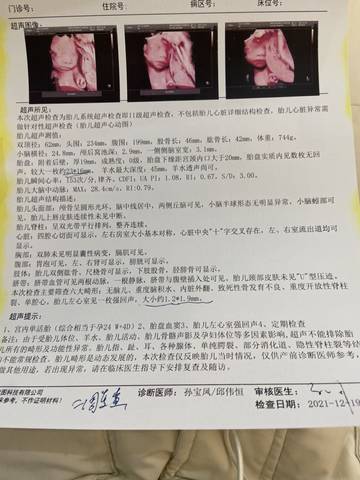 门诊号: 住院号: 病区号: 床位号:
超声图像:
超声所见:
本次超声检查为胎儿系统超声检查即II级超声检查,不包括胎儿心脏详细结构检查,胎儿心脏异常需
做针对性超声检查(胎儿超声心动图)
胎儿超声测值:
双顶径:62mm,头围:234mm,腹围:199mm,股骨长:46mm,肱骨长:42mm,体重:744g,
小脑横径:24.8mm,颅后窝池深:2.9mm,一侧侧脑室宽:3.1mm,
胎盘:附着后壁,厚19mm,成熟度:0级,胎盘下缘距宫颈内口大于20mm,胎盘实质内见数枚无回
声,较大一枚约23*16mm,羊水最大深度:45mm,羊水透声尚可。
胎儿瞬间心率:153次/分,律齐。CDFI:UA PI:1.08,RI:0.67,S/D:3.00。
胎儿大脑中动脉:MAX:28.4cm/s,RI:0.79。
胎儿超声结构描述:
胎儿头面部:颅骨呈圆形光环,脑中线居中,两侧丘脑可见,小脑半球形态无明显异常,小脑蚓部可
见,胎儿上唇皮肤连续性未见中断。
胎儿脊柱:呈双光带平行排列,整齐连续。
心脏:四腔心切面可显示,左右房室大小基本对称,心脏中央"十"字交叉存在,左、右室流出道均可
显示。
胸部:双肺未见明显囊性病变,膈肌可见。
腹部:胃泡可见,左、右肾可显示,膀胱可显示。
肢体:胎儿双侧肱骨、尺桡骨可显示,下肢股骨、胫腓骨可显示。
脐带:脐带血管可见两根动脉,一根静脉,脐带与腹壁插入处可见,胎儿颈部皮肤未见"U"型压迹。
本次检查主要筛查六大畸形:无脑儿、重度脑积水、内脏外翻、致死性骨发育不良、重度开放性脊柱
裂、单腔心。胎儿左心室见一枚强回声,大小约1.2*1.9mm。
超声提示:
1、宫内单活胎(综合相当于孕24 W+4D) 2、胎盘血窦3、胎儿左心室强回声4、定期检查
备注:由于受胎儿体位、羊水、胎儿活动、胎儿骨骼声影及孕妇体位等多项因素影响,超声不能排除胎
儿所有的畸形及功能性异常,胎儿指、趾、耳、各种腺体、单纯腭裂、部分消化道、隐性脊柱裂等结
构不能常规检查,胎儿畸形是动态发展的,本次检查仅反映胎儿当时情况,仅供产前诊断医师参考,
做其他用途,若出现异常,请在临床医生指导下安排复查及随访。
图科技有限公司
来参考,不作证明材料!
诊断医师: 孙宝凤/邱伟恒 审核医生:
检查日期: 2021-12-19